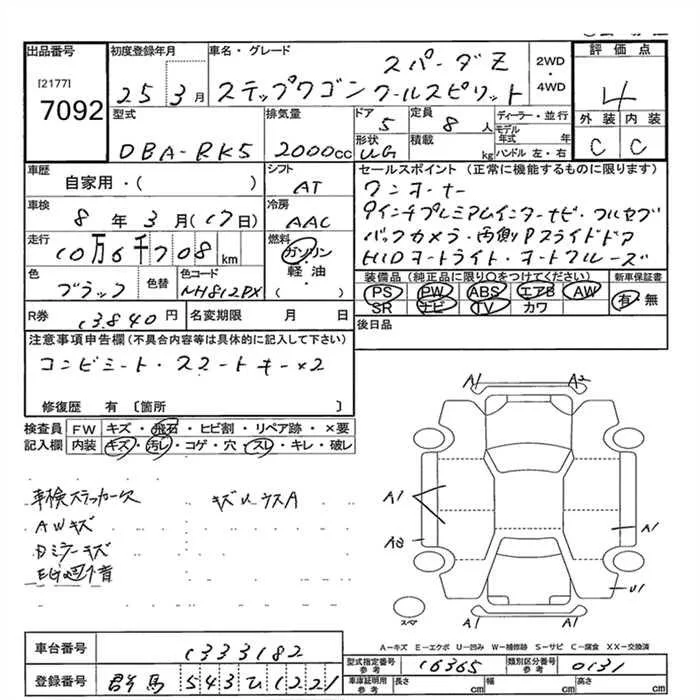 出品番号 初度登録年月 車名・グレード 評価点
[2177] スパーダZ 2WD・4WD
7092 25 3月 ステップワゴン クールスピリット 4
型式 排気量 ドア 定員 ディーラー・並行 外装 内装
5 8人 モデル年式 年
DBA-RK5 2000cc 形状 積載 C C
UG kg ハンドル 左・右
車歴 シフト セールスポイント (正常に機能するものに限ります)
自家用・( ) AT ワンオーナー
車検 冷房 9インチプレミアムインターナビ・フルセグ
8年3月(17日) AAC バックカメラ・両側Pスライドドア
走行 燃料 HIDオートライト・オートクルーズ
10万6千708km ガソリン・軽油( )
色 色替 色コード 装備品 (純正品に限り○をつけてください) 新車保証書
ブラック NH812PX PS PW ABS エアB AW 有・無
SR ナビ TV カワ
R券 13840円 名変期限 月 日 後日品
注意事項申告欄 (不具合内容等は具体的に記入して下さい)
コンビシート・スマートキー×2
修復歴 有 〔箇所 〕
検査員記入欄 FW キズ・飛石・ヒビ割・リペア跡・×要
内装 キズ・汚レ・コゲ・穴・スレ・キレ・破レ
A1 A2
車検ステッカー欠 キズU・ウスA
AWキズ A1
Dミラーキズ A1
A1
U1
スペア
A1 A1
A-キズ E-エクボ U-凹み W-補修跡 S-サビ C-腐食 XX-交換済
車台番号 1333182
型式指定番号 参考 16365 類別区分番号 参考 0131
登録番号 群馬 543 ひ 1221
車庫証明用 参考 長さ cm 幅 cm 高さ cm